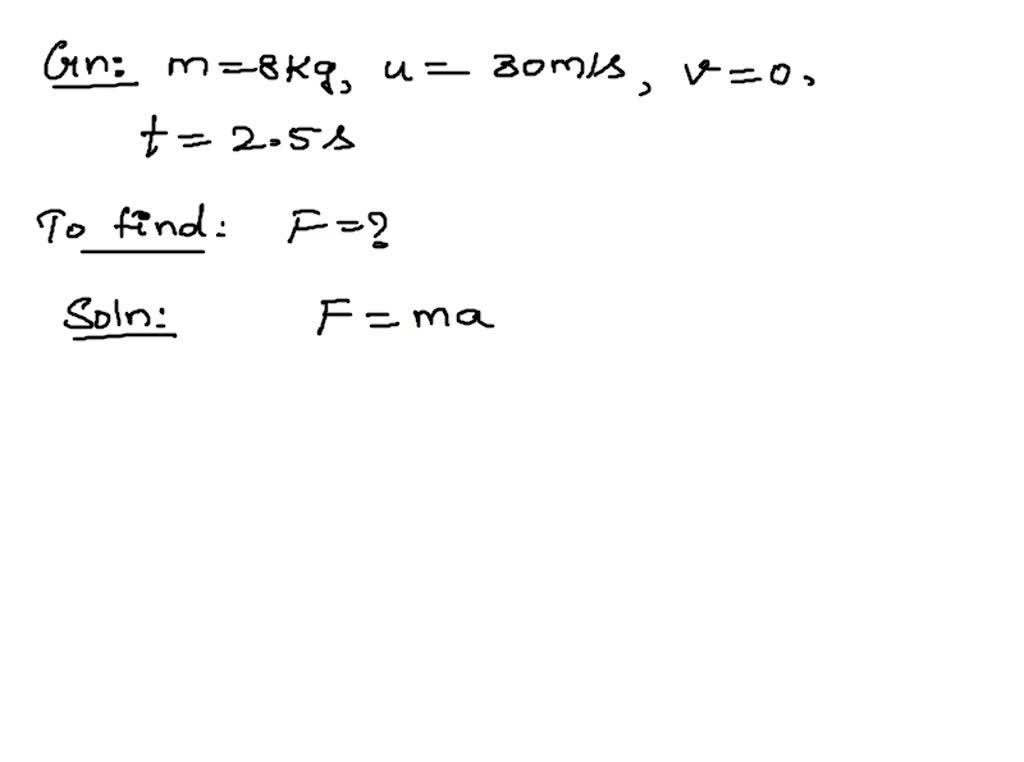 Gn: m=8kg, u= 30m/s, v=0,
t= 2.5s
To find: F=?
Soln: F=ma